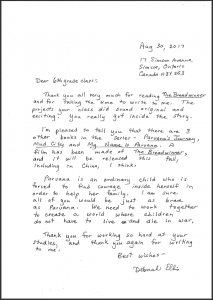 Aug 30, 2017
17 Simcoe Avenue
Simcoe, Ontario
Canada N3Y
Dear 6th grade class:
Thank you all very much for reading The Breadwinner
and for taking the time to write to me. The
projects your class did sound original and
exciting. You really got inside the story.
I'm pleased to tell you that there are 3
other books in the series - Parvana's Journey,
Mud City and My Name is Parvana. A
film has been made of The Breadwinner,
and it will be released this fall,
including in China, I think.
Parvana is an ordinary child who is
forced to find courage inside herself in
order to help her family. I am sure
all of you would be just as brave
as Parvana. We need to work together
to create a world where children
do not have to live and die in war.
Thank you for working so hard at your
studies, and thank you again for writing
to me.
Best wishes -
Deborah Ellis